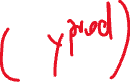 ( y prod )